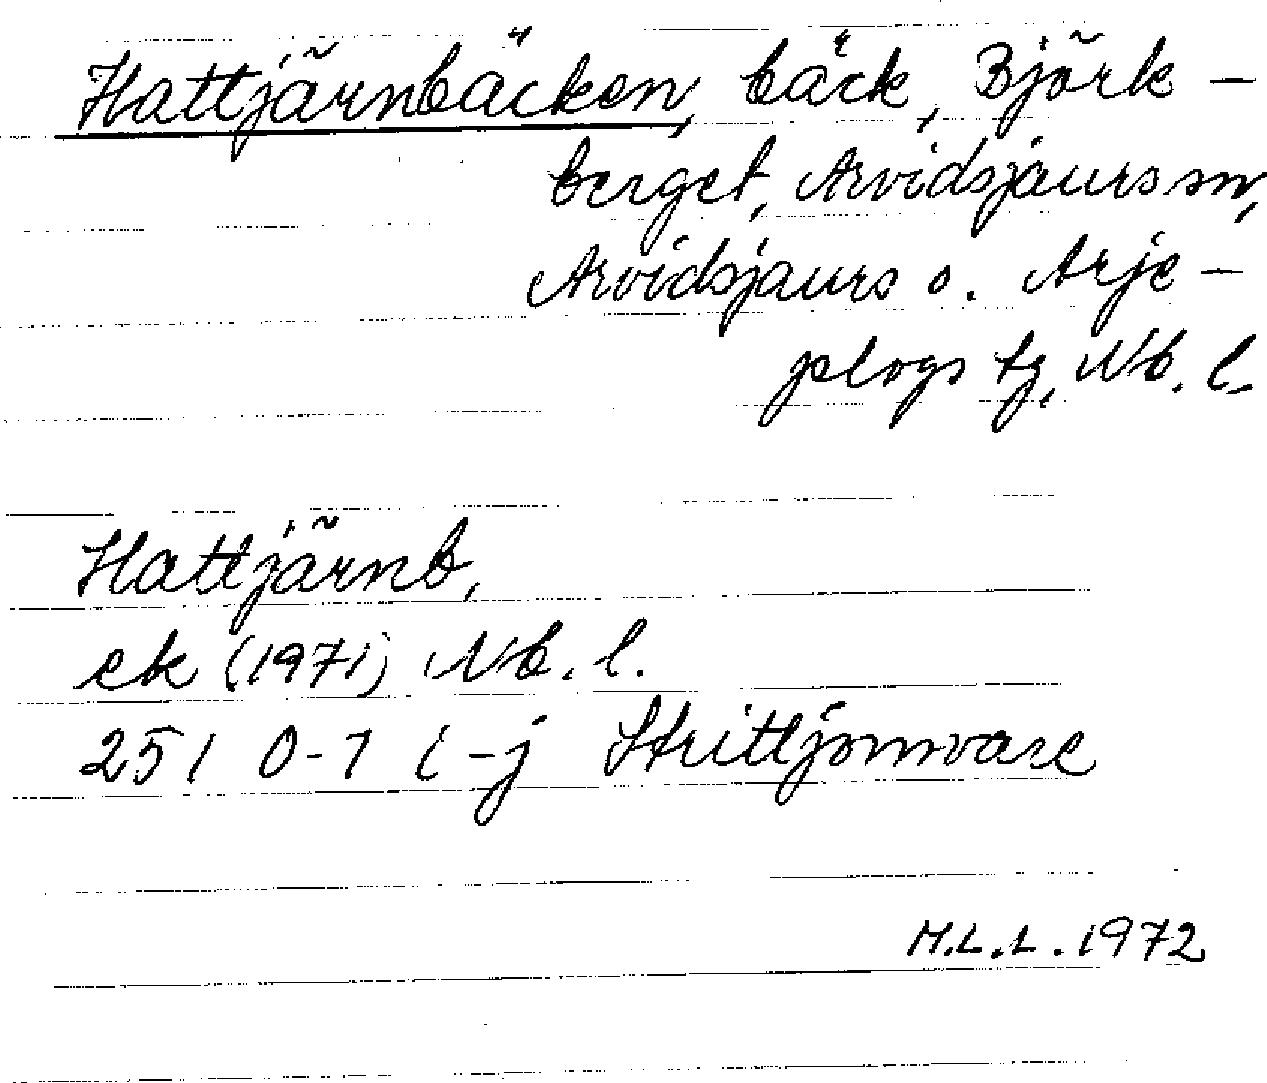 Hattjärnbäcken, bäck, Björk-
berget, Arvidsjaurs sn,
Arvidsjaurs o. Arje-
plogs tg, Nb. l.
Hattjärnb,
ek (1971) Nb. l.
25 I 0-1 i-j Strittjomvare
M.L.L. 1972